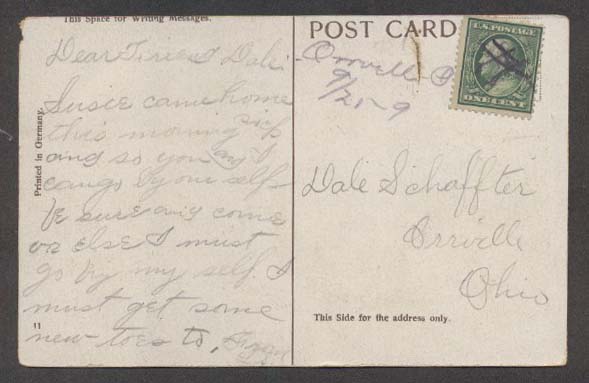 This Space for Writing Messages.
Dear Friend Dale
Susie came home
this morning sick
and so you and I
can go by our self
be sure and come
or else I must
go by my self. I
must get some
new toes to,
Printed in Germany.
11
POST CARD
Orrville O
9/21-9
U.S. POSTAGE
ONE CENT
Dale Schaffter
Orrville
Ohio
This Side for the address only.